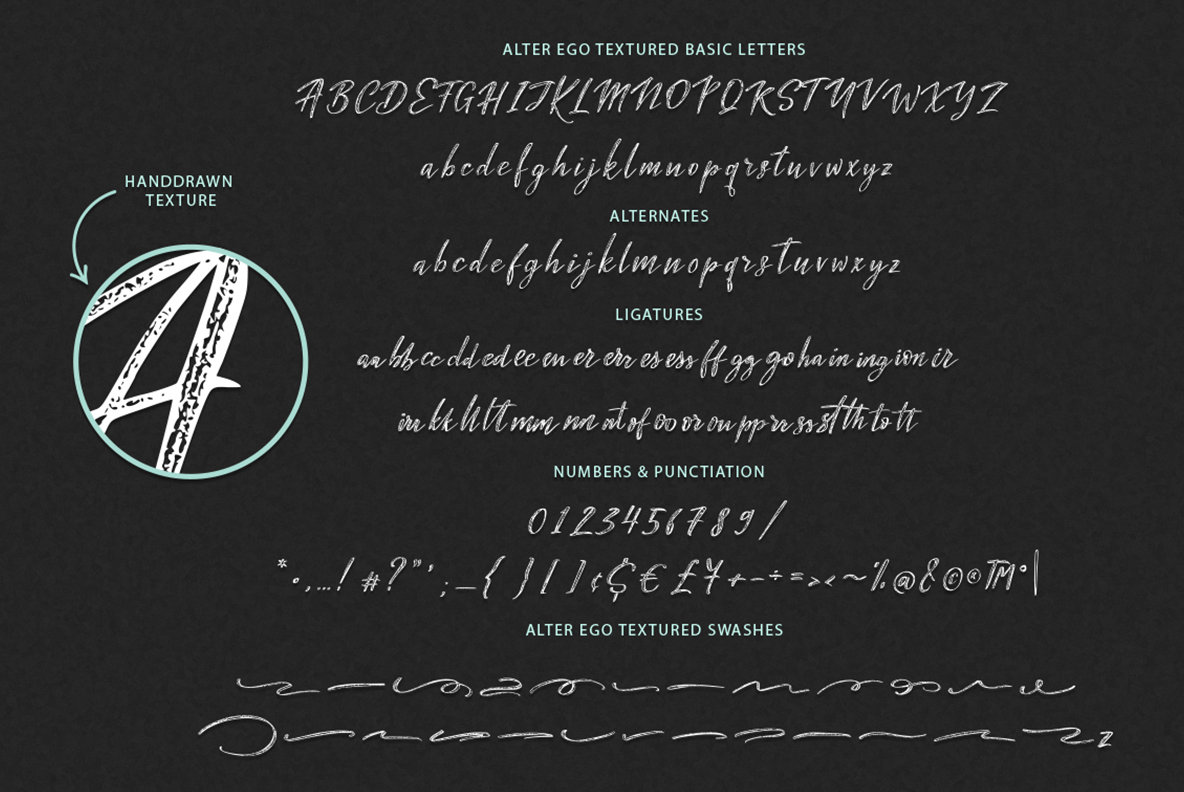 ALTER EGO TEXTURED BASIC LETTERS
ABCDEFGHIJKLMNOPQRSTUVWXYZ
abcdefghijklmnopqrstuvwxyz
HANDDRAWN
TEXTURE
ALTERNATES
abcdefghijklmnopqrstuvwxyz
A
LIGATURES
aa bb cc dd ed ee en er err es ess ff gg go ha in ing ion ir
irr kk ll lt mm nn nt of oo or ou pp rr ss st th to tt
NUMBERS & PUNCTIATION
0123456789/
*•,...!#?"';_{}[]¢$€£¥+-÷=><~%@&©®™°|
ALTER EGO TEXTURED SWASHES
z